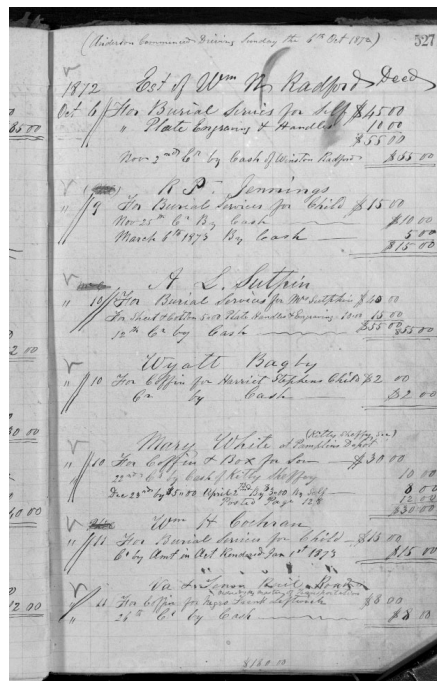 (Anderson Commenced Driving Sunday the 6th Oct 1872) 527
1872 Est of Wm N Radford Decd
Oct 6 For Burial Servics for Self $45 00
" Plate Engraving & Handles 10 00
$55 00
Nov 2nd Cr by Cash of Winston Radford $55 00
R P. Jennings
" 9 For Burial Services for Child $15 00
Nov 25th Cr By Cash $10 00
March 6th 1873 By Cash 5 00
$15 00
A L. Sutpin
" 10 For Burial Services for Mrs Sutphin $40 00
For Sheet & Cotton 5.00 Plate Handles & Engraving 10.00 15 00
12th Cr by Cash $55 00 $55 00
Wyatt Bagby
" 10 For Coffin for Harriet Stephens Child $2 00
Cr by Cash $2 00
Mary White at Pamplins Depot
" 10 For Coffin & Box for Son $30 00
22nd Cr by Cash of Kitty 10 00
Dec 23rd by $8.00 By Self 8 00
Posted Page 128 12 00
$30 00
Wm H Cochran
" 11 For Burial Service for Child $15 00
Cr by Amt in Act Rendered Jan 1st 1873 $15 00
Va & Road
" 11 For Coffin for Negro Frank Leftwich $8 00
" 28th Cr by Cash $8 00
$180.00
85 00
2 00
30 00
40 00
12 00